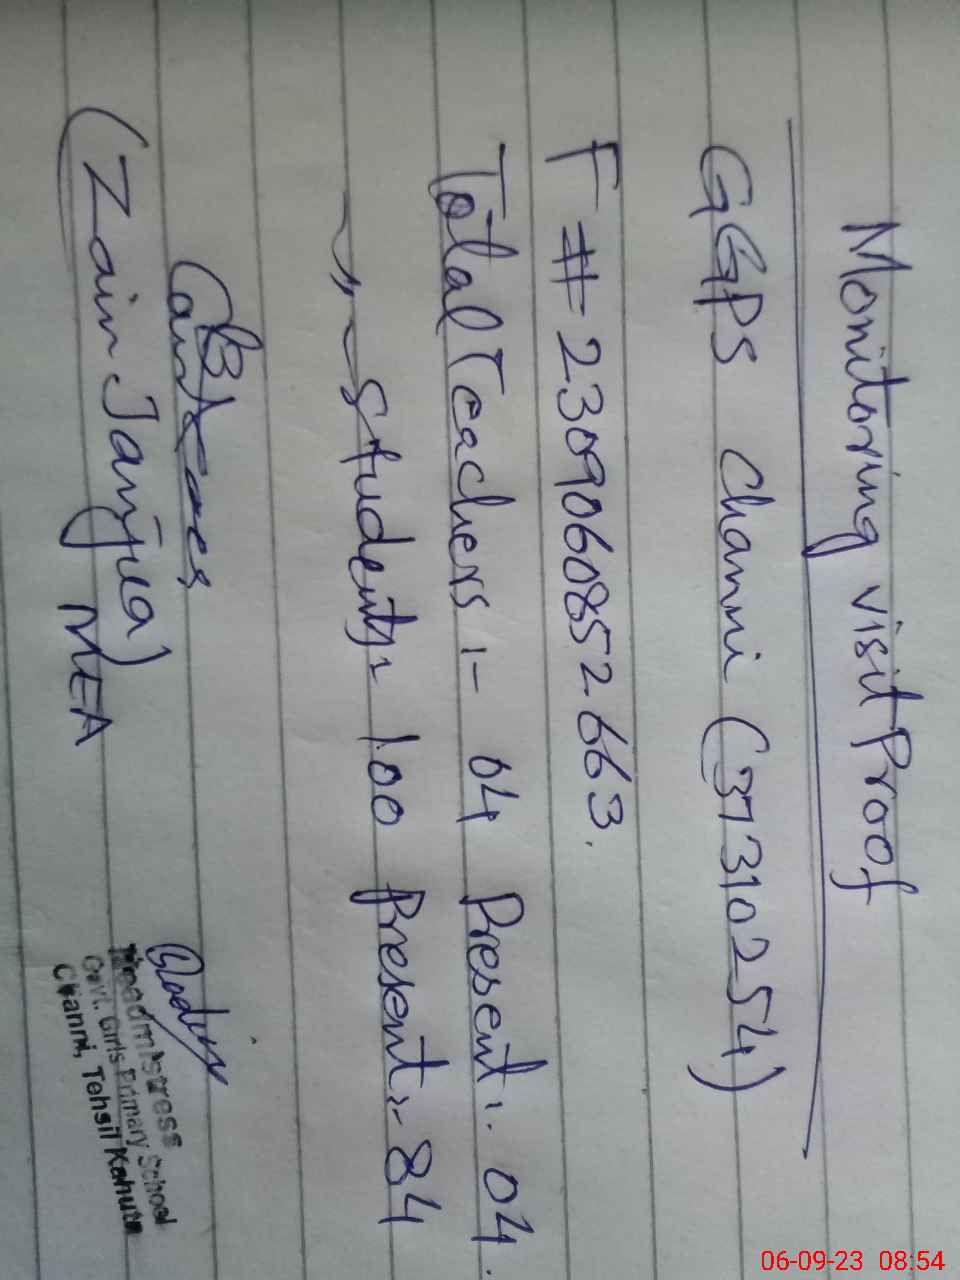 Monitoring visit Proof
GGPS Channi (37310254)
F # 2309060852663.
Total Teachers :- 04 Present :. 04.
〃 Students :- 100 Present :- 84
(Zain Janjua)
MEA
Headmistress
Govt. Girls Primary School
Channi, Tehsil Kahuta
06-09-23 08:54